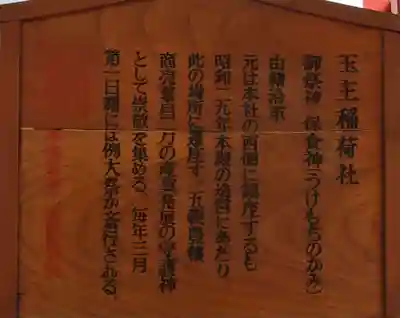 玉主稲荷社
御祭神 保食神(うけもちのかみ)
由緒沿革
元は本社の西側に鎮座するも
昭和二五年本殿の造営にあたり
此の場所に遷座す。五穀豊穣
商売繁昌 万の産業発展の守護神
として崇敬を集める。毎年三月
第一日曜には例大祭が斎行される。